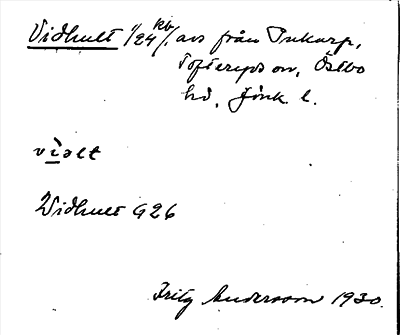 Vidhult 1/24 kb. avs från Inkarp,
Tofteryds sn, Östbo
hd, Jönk. l.
vìslt
Widhult G26
Fritz Andersson 1930.